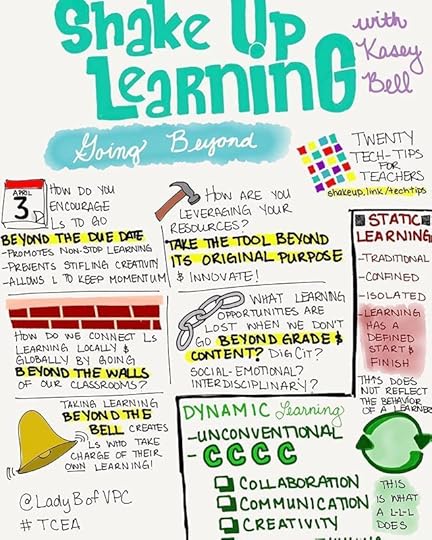 Shake Up
Learning
with
Kasey
Bell
Going Beyond
TWENTY
TECH-TIPS
FOR
TEACHERS
shakeup.link/techtips
APRIL
3
HOW DO YOU
ENCOURAGE
Ls TO GO
BEYOND THE DUE DATE
-PROMOTES NON-STOP LEARNING
-PREVENTS STIFLING CREATIVITY
-ALLOWS L TO KEEP MOMENTUM
HOW ARE YOU
LEVERAGING YOUR
RESOURCES?
TAKE THE TOOL BEYOND
ITS ORIGINAL PURPOSE
& INNOVATE!
STATIC
LEARNING
-TRADITIONAL
-CONFINED
-ISOLATED
-LEARNING
HAS A
DEFINED
START &
FINISH
THIS DOES
NOT REFLECT
THE BEHAVIOR
OF A LEARNER
HOW DO WE CONNECT Ls
LEARNING LOCALLY &
GLOBALLY BY GOING
BEYOND THE WALLS
OF OUR CLASSROOMS?
WHAT LEARNING
OPPORTUNITIES ARE
LOST WHEN WE DON'T
GO BEYOND GRADE &
CONTENT? DIGCIT?
SOCIAL-EMOTIONAL?
INTERDISCIPLINARY?
TAKING LEARNING
BEYOND THE
BELL CREATES
Ls WHO TAKE
CHARGE OF THEIR
OWN LEARNING!
@LadyBofVPC
#TCEA
DYNAMIC Learning
-UNCONVENTIONAL
-CCCC
COLLABORATION
COMMUNICATION
CREATIVITY
THIS
IS WHAT
A L-L-L
DOES